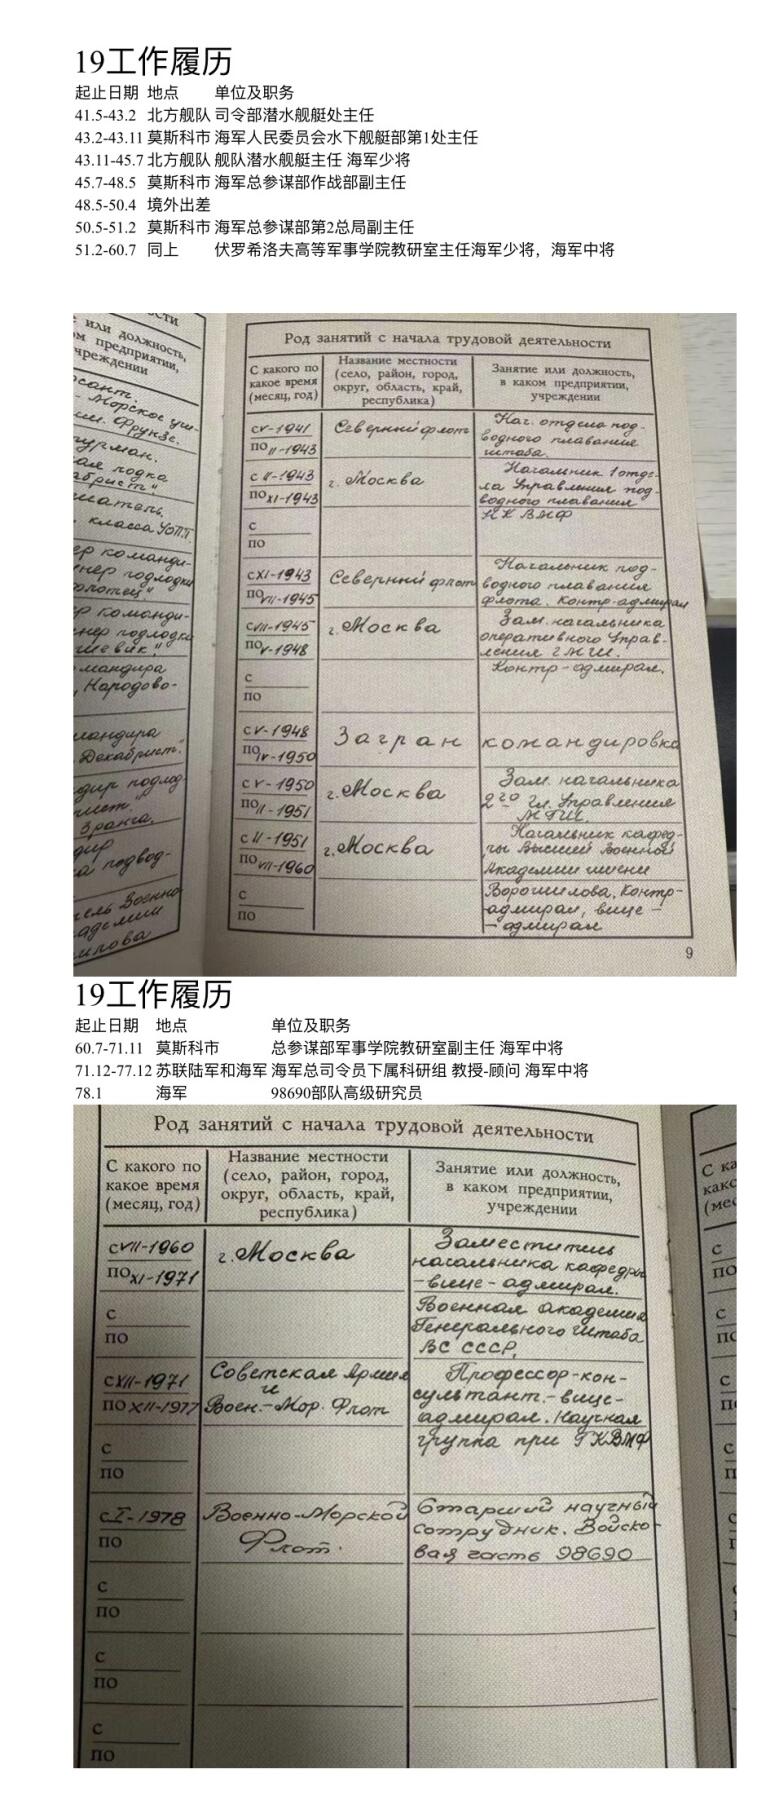 19工作履历
起止日期 地点 单位及职务
41.5-43.2 北方舰队 司令部潜水舰艇处主任
43.2-43.11 莫斯科市 海军人民委员会水下舰艇部第1处主任
43.11-45.7 北方舰队 舰队潜水舰艇主任 海军少将
45.7-48.5 莫斯科市 海军总参谋部作战部副主任
48.5-50.4 境外出差
50.5-51.2 莫斯科市 海军总参谋部第2总局副主任
51.2-60.7 同上 伏罗希洛夫高等军事学院教研室主任海军少将，海军中将
ости
е или должность,
ом предприятии,
учреждении
рсант.
- Морское учи-
им. Фрунзе.
турман.
ая лодка
класса УОПП.
ер команди-
нер подлодки
ер команди-
нер подлодки
мандира
Народово-
мандира
Декабрист."
дир подлод-
Врангa.
дир
а подвод-
ель Военно
адемии
илова
Род занятий с начала трудовой деятельности
С какого по какое время (месяц, год)
Название местности (село, район, город, округ, область, край, республика)
Занятие или должность, в каком предприятии, учреждении
с V-1941 Северный флот Нач. отдела под-
по II-1943 водного плавания
штаба.
с II-1943 г. Москва Начальник 1 отде-
ла Управления под-
по XI-1943 водного плавания
с НК ВМФ
по
с XI-1943 Северный флот Начальник под-
водного плавания
по VII-1945 флота. Контр-адмирал
с VII-1945 г. Москва Зам. начальника
оперативного Управ-
по V-1948 ления ГМШ.
с Контр-адмирал.
по
с V-1948 Загран командировка
по IV-1950
с V-1950 г. Москва Зам. начальника
2го Гл. Управления
по II-1951 МГШ.
с II-1951 г. Москва Начальник кафед-
ры Высшей Военной
по VII-1960 Академии имени
с Ворошилова. Контр-
адмирал, вице-
по -адмирал
9
19工作履历
起止日期 地点 单位及职务
60.7-71.11 莫斯科市 总参谋部军事学院教研室副主任 海军中将
71.12-77.12 苏联陆军和海军 海军总司令员下属科研组 教授-顾问 海军中将
78.1 海军 98690部队高级研究员
Род занятий с начала трудовой деятельности
С какого по какое время (месяц, год)
Название местности (село, район, город, округ, область, край, республика)
Занятие или должность, в каком предприятии, учреждении
с VII-1960 г. Москва Заместитель
начальника кафедры
по XI-1971 -вице-адмирал.
с Военная академия
Генерального штаба
по ВС СССР,
с XII-1971 Советская Армия Профессор-кон-
и сультант.-вице-
по XII-1977 Воен.-Мор. Флот адмирал. Научная
с группа при ГК ВМФ
по
с I-1978 Военно-Морской Старший научный
сотрудник. Войско-
по Флот. вая часть 98690
с
по
с
по
с
по
С ка
како
(мес
с
по
с
по
с
по